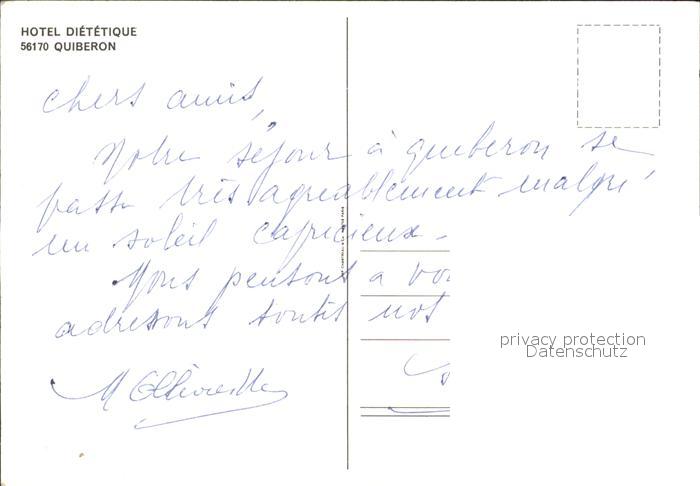 HOTEL DIÉTÉTIQUE
56170 QUIBERON
chers amis,
Notre séjour à quiberon se
passe très agréablement malgré
un soleil capricieux -
Nous pensons a vou
adressons toutes nos
privacy protection
Datenschutz